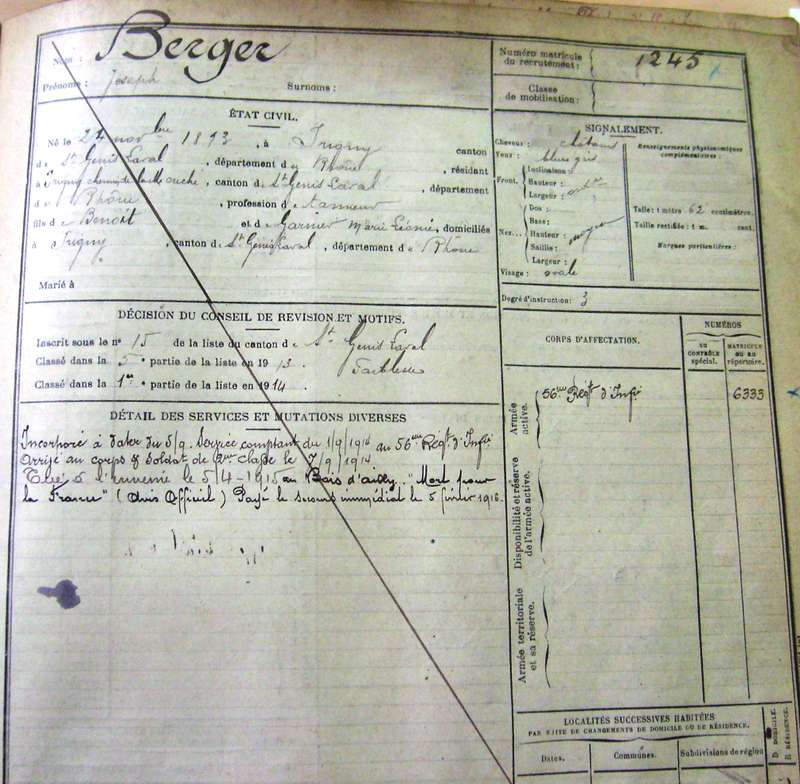 Nom : Berger
Prénoms : Joseph Surnoms :
Numéro matricule du recrutement : 1245
Classe de mobilisation :
ÉTAT CIVIL.
Né le 24 novbre 1893, à Irigny canton
de St Genis Laval, département de Rhône, résidant
à Irigny chemin de la Mouche, canton de St Genis Laval, département
de Rhône, profession de tanneur
fils de Benoit et de Garnier Marie, domiciliés
à Irigny, canton de St Genis Laval, département de Rhône
Marié à
SIGNALEMENT.
Cheveux : châtains
Yeux : bleus gris
Front. Inclinaison :
Hauteur :
Largeur :
Nez... Dos :
Base :
Hauteur : moyen
Saillie :
Largeur :
Visage : ovale
Renseignements physionomiques complémentaires :
Taille : 1 mètre 62 centimètres.
Taille rectifiée : 1 m. cent.
Marques particulières :
Degré d'instruction : 3
DÉCISION DU CONSEIL DE REVISION ET MOTIFS.
Inscrit sous le n° 15 de la liste du canton de St Genis Laval
Classé dans la 5e partie de la liste en 1913 Faiblesse
Classé dans la 1re partie de la liste en 1914
DÉTAIL DES SERVICES ET MUTATIONS DIVERSES
Incorporé à dater du 5/9. Service comptant du 1/9/1914 au 56ème Régt d'Infie
Arrivé au corps & soldat de 2me classe le 7/9/1914
Tué à l'ennemi le 5/4-1915 au Bois d'ailly. "Mort pour
la France" (Avis Officiel) Payé le secours immédiat le 5 février 1916.
CORPS D'AFFECTATION.
NUMÉROS
AU CONTRÔLE spécial.
MATRICULE OU AU répertoire.
Armée active.
56ème Régt d'Infie 6333
Disponibilité et réserve de l'armée active.
Armée territoriale et sa réserve.
LOCALITÉS SUCCESSIVES HABITÉES
PAR SUITE DE CHANGEMENTS DE DOMICILE OU DE RÉSIDENCE.
Dates. Communes. Subdivisions de région
D. DOMICILE.
R. RÉSIDENCE.